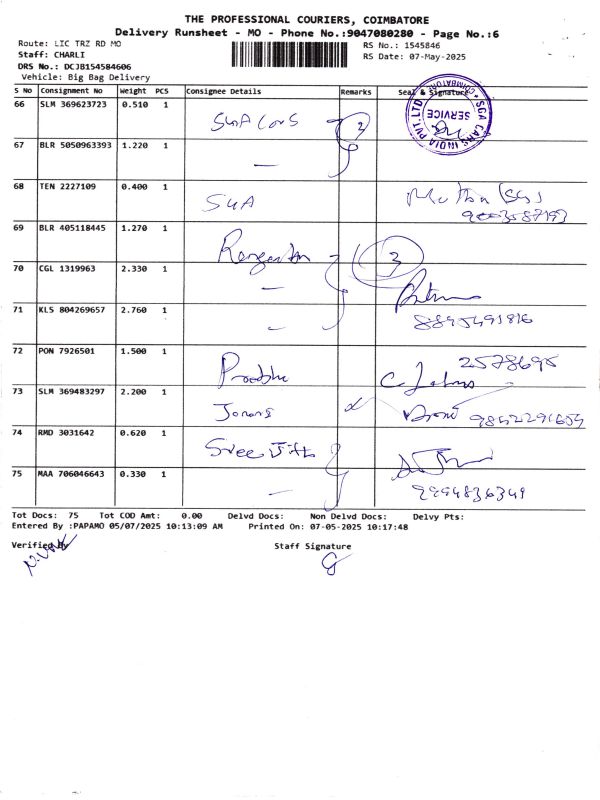 THE PROFESSIONAL COURIERS, COIMBATORE
Delivery Runsheet - MO - Phone No.:9047080280 - Page No.:6
Route: LIC TRZ RD MO
RS No.: 1545846
Staff: CHARLI
RS Date: 07-May-2025
DRS No.: DCJB154584606
Vehicle: Big Bag Delivery
S No Consignment No Weight PCS Consignee Details Remarks Seal & Signature
66 SLM 369623723 0.510 1 SGA Cars 2
SGA CARS INDIA PVT.LTD
SERVICE
COIMBATORE
67 BLR 5050963393 1.220 1 —
68 TEN 2227109 0.400 1 SGA
69 BLR 405118445 1.270 1 3
70 CGL 1319963 2.330 1 —
71 KLS 804269657 2.760 1 —
8895491816
72 PON 7926501 1.500 1 Prabhu 2578695
73 SLM 369483297 2.200 1
74 RMD 3031642 0.620 1 Sree
75 MAA 706046643 0.330 1 —
9994836349
Tot Docs: 75 Tot COD Amt: 0.00 Delvd Docs: Non Delvd Docs: Delvy Pts:
Entered By :PAPAMO 05/07/2025 10:13:09 AM Printed On: 07-05-2025 10:17:48
Verified By Staff Signature